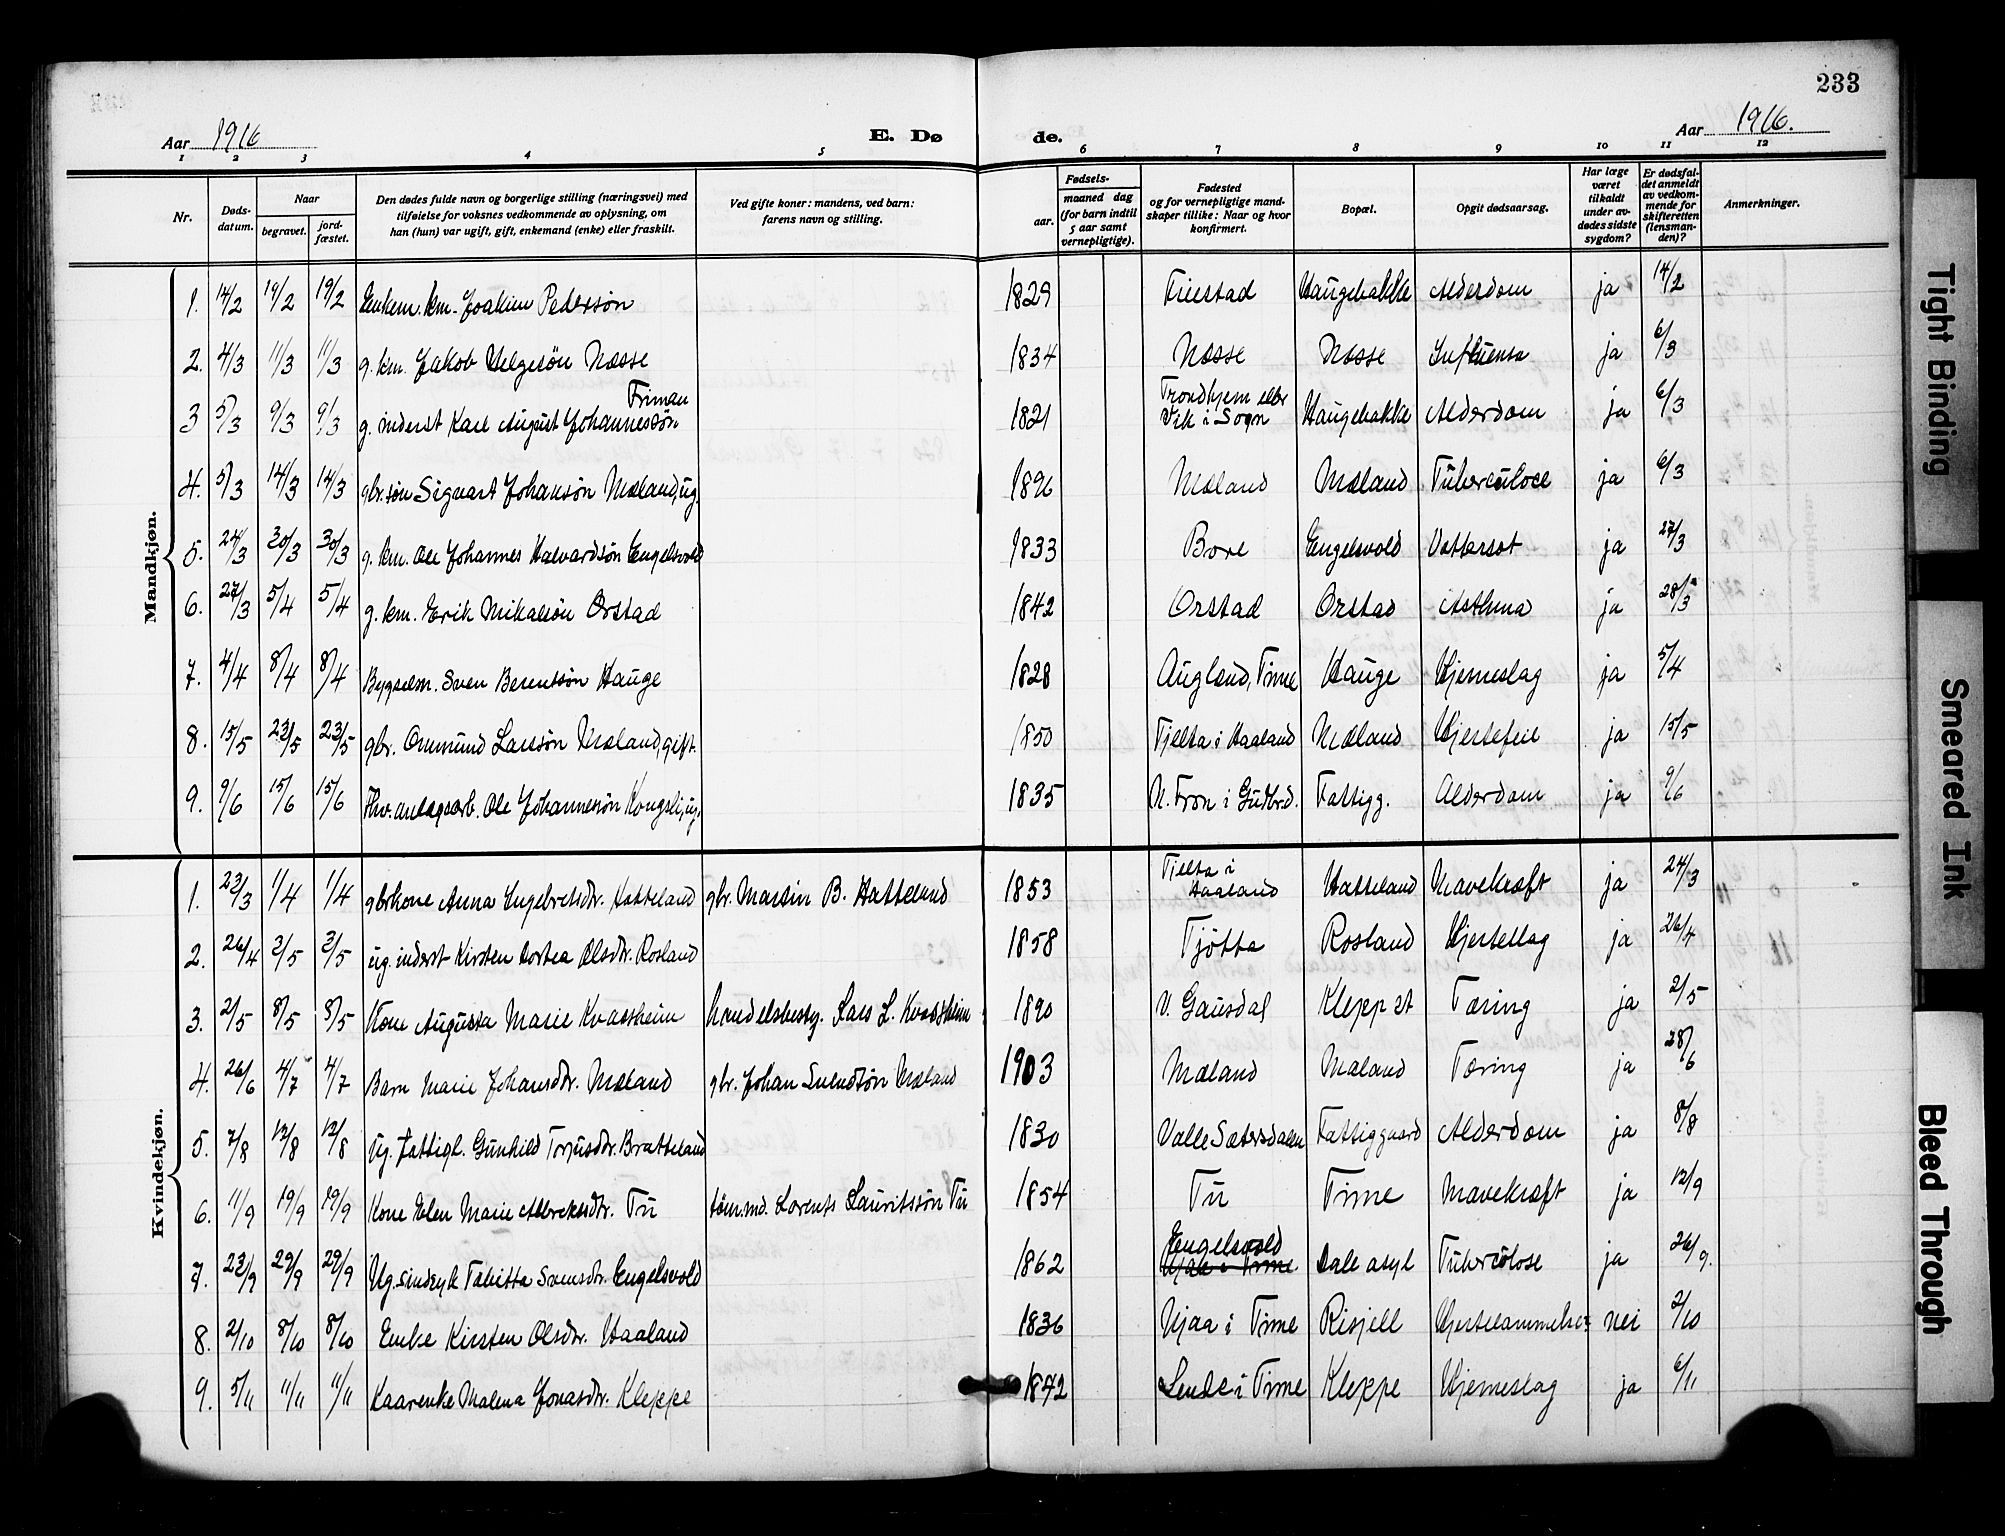 233
Aar 1916
E. Dø
de.
Aar 1916.
1 2 3 4 5 6 7 8 9 10 11 12
Nr.
Døds-
datum.
Naar
begravet.
jord-
fæstet.
Den dødes fulde navn og borgerlige stilling (næringsvei) med
tilføielse for voksnes vedkommende av oplysning, om
han (hun) var ugift, gift, enkemand (enke) eller fraskilt.
Ved gifte koner: mandens, ved barn:
farens navn og stilling.
Fødsels-
aar.
maaned dag
(for barn indtil
5 aar samt
vernepligtige).
Fødested
og for vernepligtige mand-
skaper tillike: Naar og hvor
konfirmert.
Bopæl.
Opgit dødsaarsag.
Har læge
været
tilkaldt
under av-
dødes sidste
sygdom?
Er dødsfal-
det anmeldt
av vedkom-
mende for
skifteretten
(lensman-
den)?
Anmerkninger.
Mandkjøn.
1. 14/2 19/2 19/2 Enkem. km. Joakim Pedersøn 1829 Tiestad Haugebakke Alderdom ja 14/2
2. 4/3 11/3 11/3 g. km. Jakob Helgesøn Næsse 1834 Næsse Næsse Influensa ja 6/3
Friman
3 5/3 9/3 9/3 g. inderst Karl August Johannessøn 1821 Trondhjem eller Vik i Sogn Haugebakke Alderdom ja 6/3
4. 5/3 14/3 14/3 gbr.søn Sigvart Johansøn Mæland, ug. 1896 Mæland Mæland Tuberculose ja 6/3
5. 24/3 30/3 30/3 g. km. Ole Johannes Halvardsøn Engelsvold 1833 Bore Engelsvold Vattersot ja 27/3
6. 27/3 5/4 5/4 g. km. Erik Mikalsøn Orstad 1842 Orstad Orstad Asthma ja 28/3
7. 4/4 8/4 8/4 Bygselm. Sven Berentsøn Hauge 1828 Augland, Time Hauge Hjerneslag ja 5/4
8. 15/5 23/5 23/5 gbr. Ommund Larssøn Mæland, gift. 1850 Tjelta i Haaland Mæland Hjertefeil ja 15/5
9. 9/6 15/6 15/6 Fhv. anlægsarb. Ole Johannessøn Kongsli, ug. 1835 N. Fron i Gudbr.d. Fattigg. Alderdom ja 9/6
Kvindekjøn.
1. 23/3 1/4 1/4 gbrkone Anna Engebretsdtr. Hatteland gbr. Martin B. Hatteland 1853 Tjelta i Haaland Hatteland Mavekræft ja 24/3
2. 26/4 3/5 3/5 ug. inderst Kirsten Dortea Olsdtr. Rosland 1858 Tjøtta Rosland Hjerteslag ja 26/4
3. 2/5 8/5 8/5 Kone Augusta Marie Kvassheim handelsbesty. Lars L. Kvassheim 1890 V. Gausdal Klepp st Tæring ja 2/5
4. 26/6 4/7 4/7 Barn Marie Johansdtr. Mæland gbr. Johan Svendsøn Mæland 1903 Mæland Mæland Tæring ja 28/6
5. 7/8 12/8 12/8 Ug. fattigl. Gunhild Torjusdtr. Bratteland 1830 Valle Sætersdalen Fattiggaard Alderdom ja 8/8
6. 11/9 19/9 19/9 Kone Elen Marie Albrektsdtr. Tu tøm.md. Lorents Lauritssøn Tu 1854 Tu Time Mavekræft ja 12/9
7. 23/9 29/9 29/9 Ug. sindsyk Tabitta Svensdtr. Engelsvold 1862 Engelsvold Njaa i Time Dale asyl Tuberculose ja 26/9.
8. 2/10 8/10 8/10 Enke Kirsten Olsdtr. Haaland 1836 Njaa i Time Risjell nei 2/10
9. 5/11 11/11 11/11 Kaarenke Malena Jonasdtr. Kleppe 1842 Lende i Time Kleppe Hjerneslag ja 6/11
Tight Binding
Smeared Ink
Bleed Through